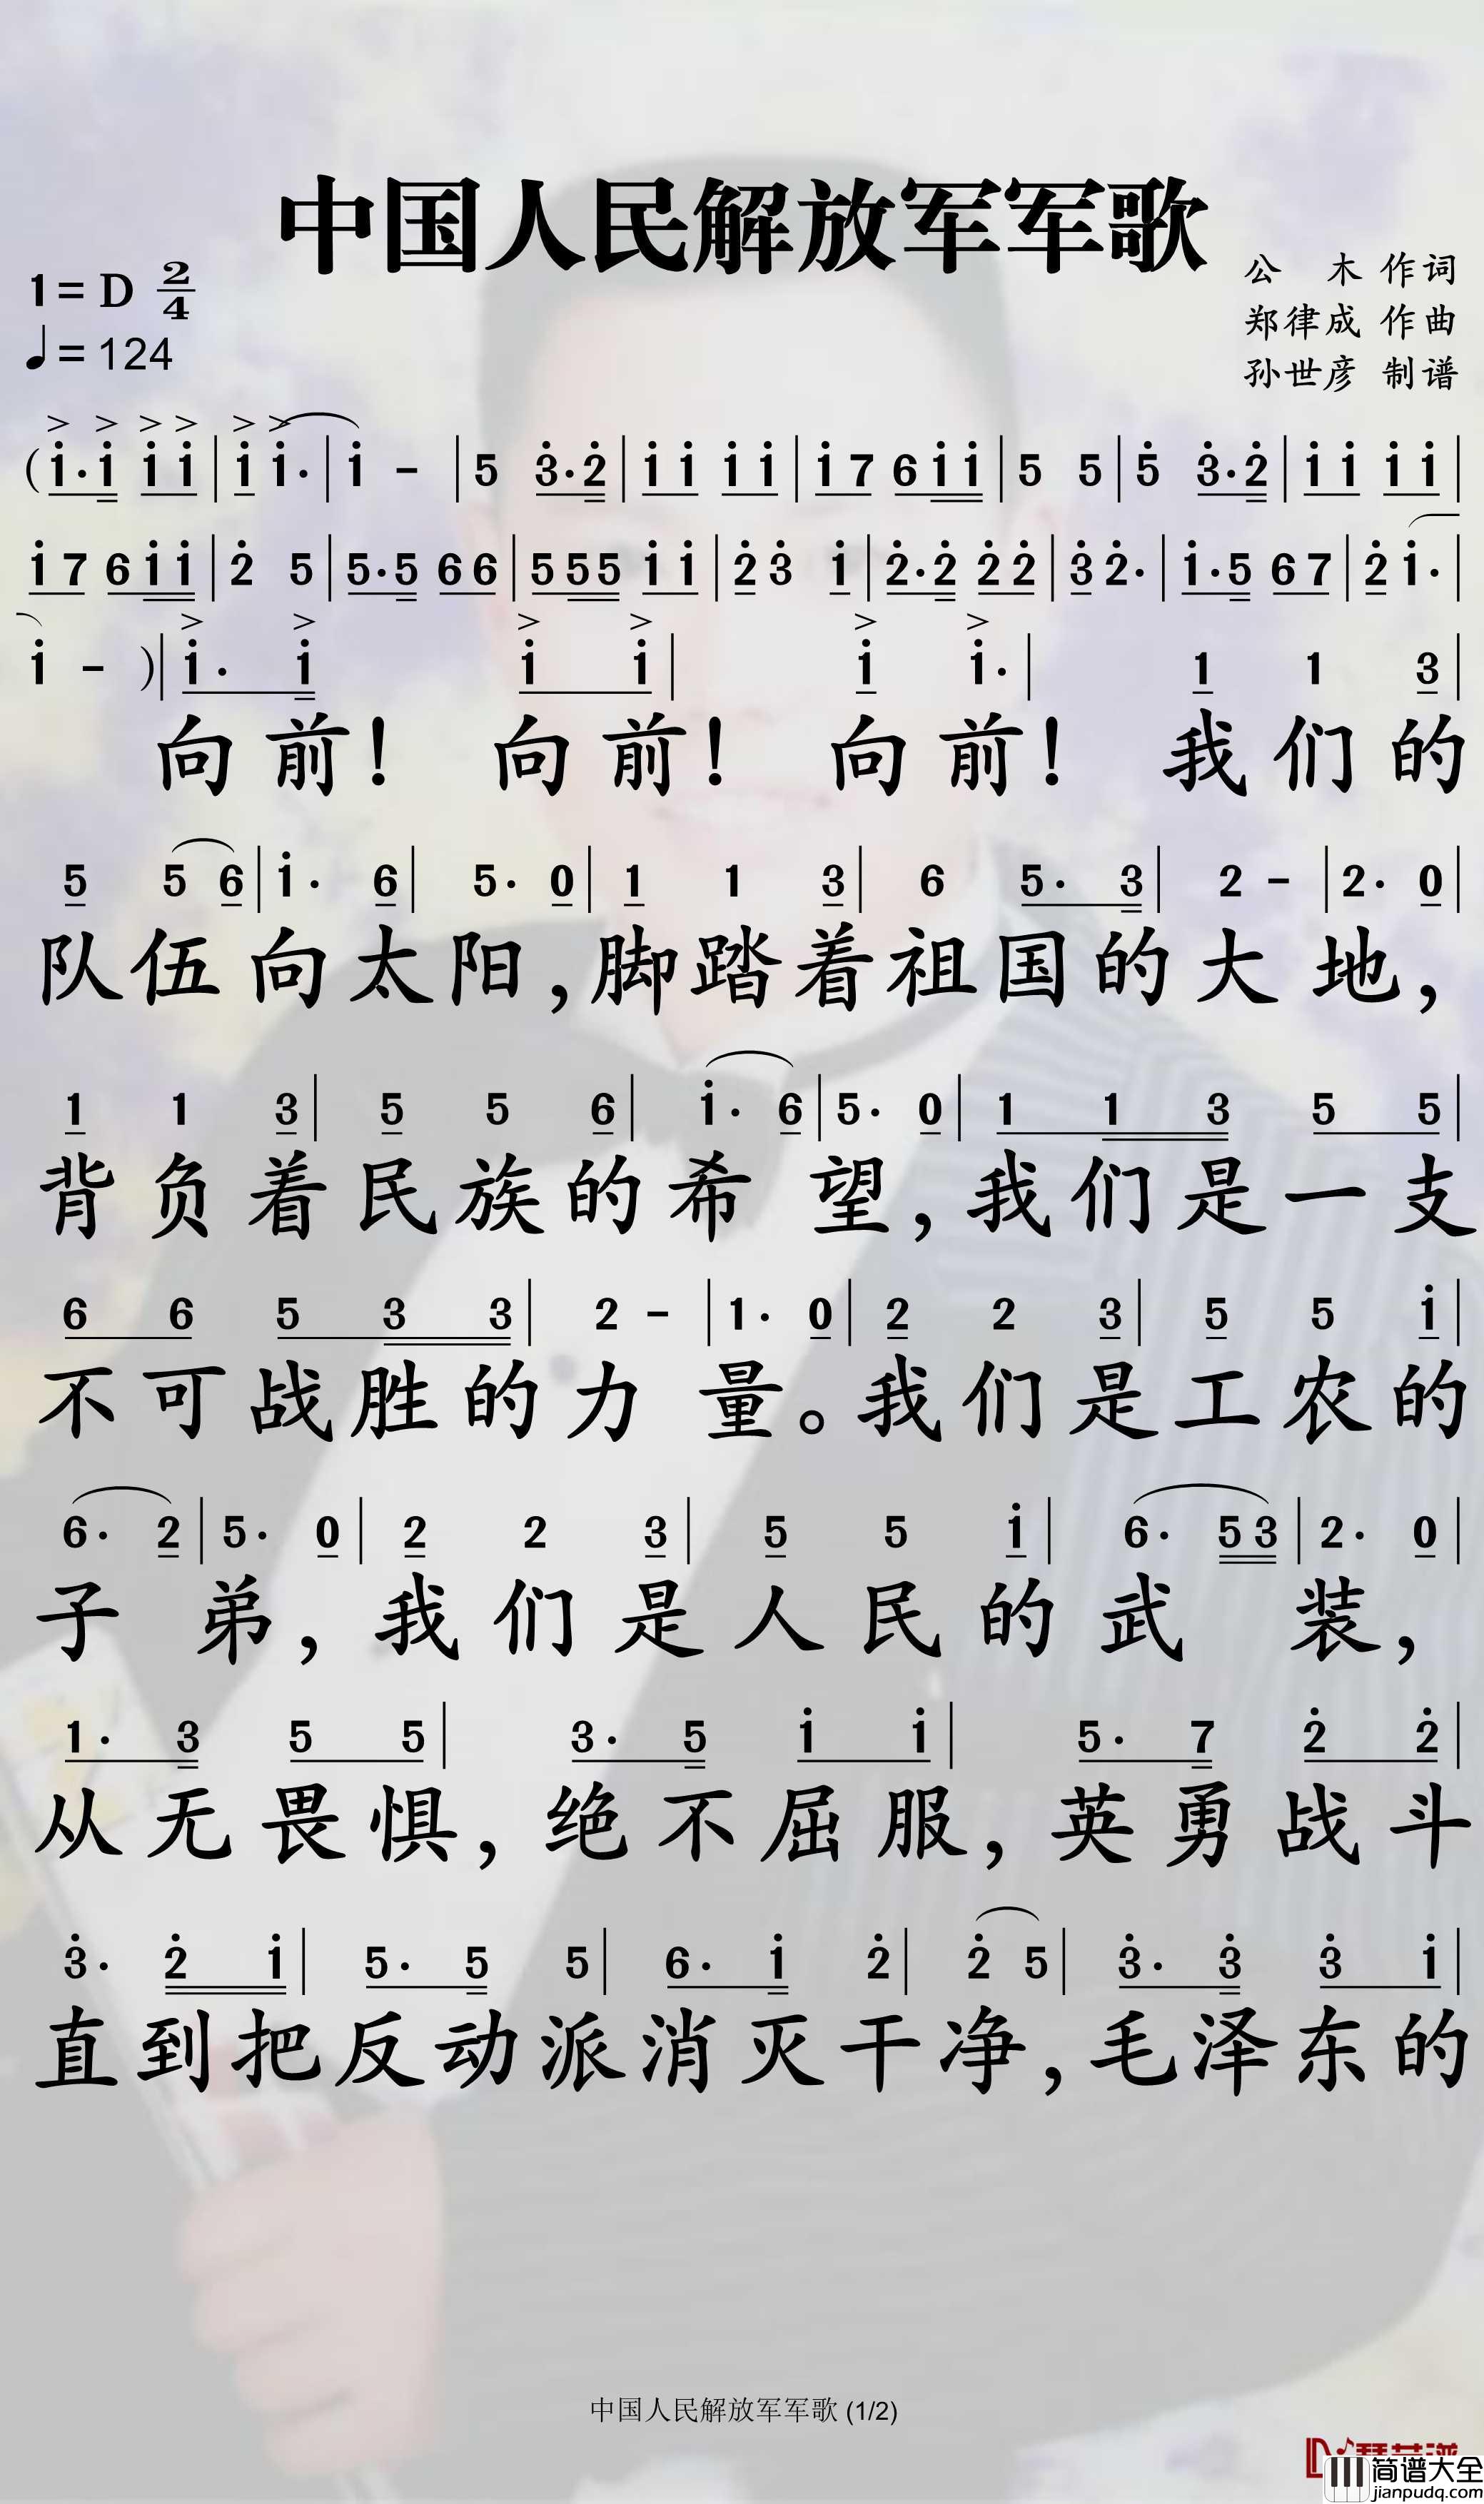 中国人民解放军军歌
1=D 2/4
♩=124
公 木 作词
郑律成 作曲
孙世彦 制谱
(i·i i i | i i· | i - | 5 3̇·2̇ | i i i i | i 7 6 i i | 5 5 | 5̇ 3̇·2̇ | i i i i |
i 7 6 i i | 2̇ 5 | 5·5 6 6 | 5 5 5 i i | 2̇ 3̇ i | 2̇·2̇ 2̇ 2̇ | 3̇ 2̇· | i·5 6 7 | 2̇ i· |
i - ) | i· i i i | i i· | 1 1 3 |
向前! 向前! 向前! 我们的
5 5 6 | i· 6 | 5· 0 | 1 1 3 | 6 5· 3 | 2 - | 2· 0 |
队伍向太阳,脚踏着祖国的大地,
1 1 3 | 5 5 6 | i· 6 | 5· 0 | 1 1 3 5 5 |
背负着民族的希望,我们是一支
6 6 5 3 3 | 2 - | 1· 0 | 2 2 3 | 5 5 i |
不可战胜的力量。我们是工农的
6· 2 | 5· 0 | 2 2 3 | 5 5 i | 6· 5 3 | 2· 0 |
子弟,我们是人民的武装,
1· 3 5 5 | 3· 5 i i | 5· 7 2̇ 2̇ |
从无畏惧,绝不屈服,英勇战斗
3̇· 2̇ i | 5· 5 5 | 6· i 2̇ | 2̇ 5 | 3̇· 3̇ 3̇ i |
直到把反动派消灭干净,毛泽东的
中国人民解放军军歌 (1/2)
简谱大全
jianpudq.com